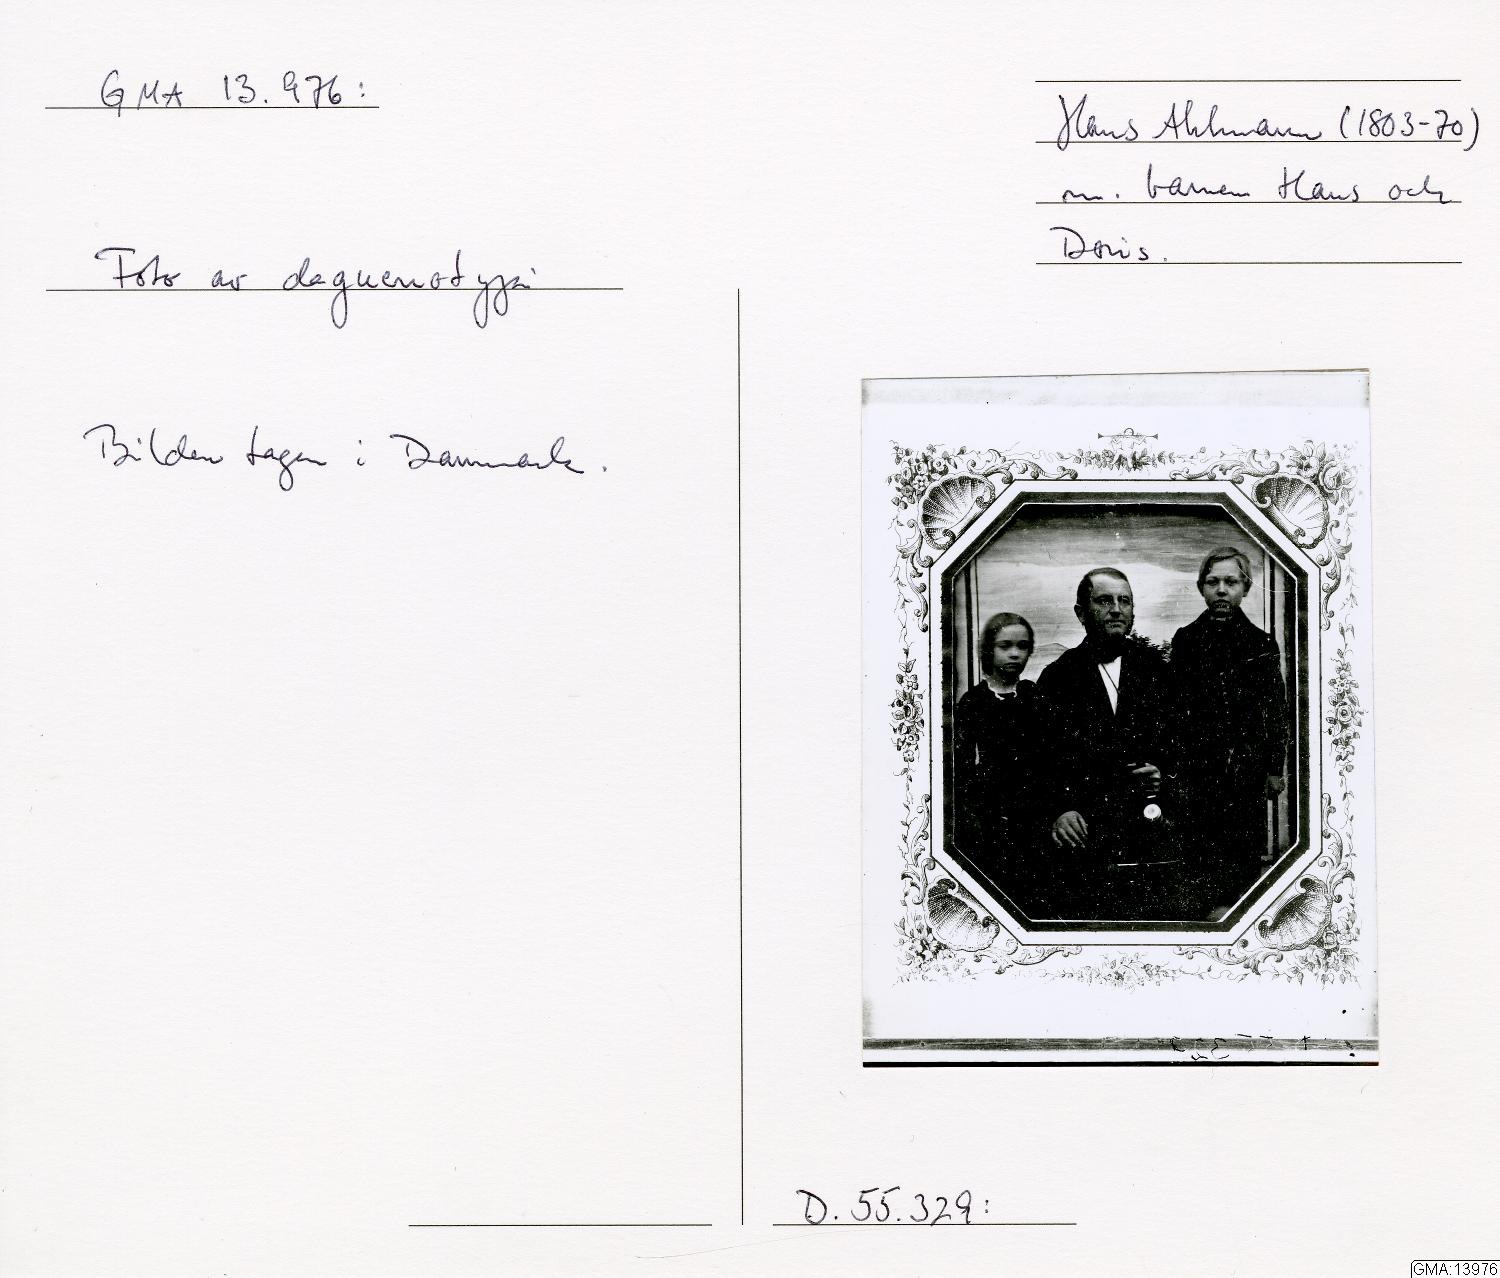 GMA 13.976:
Hans Ahlmann (1803-70)
m. barnen Hans och
Doris.
Foto av daguerrotypi
Bilden tagen i Danmark.
D. 55.329:
GMA:13976